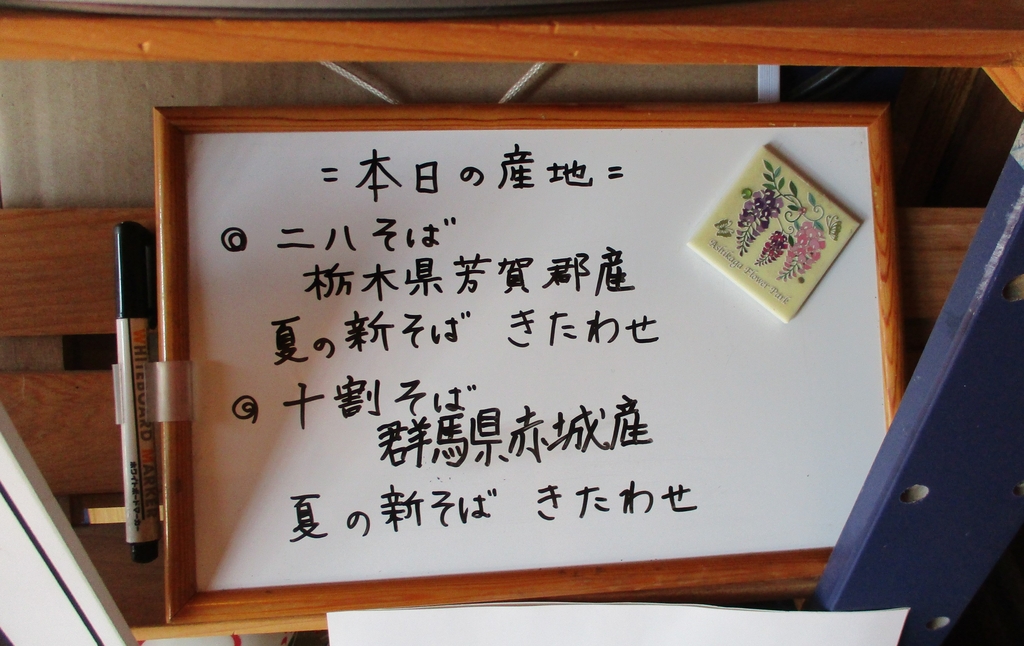 =本日の産地=
◎ 二八そば
栃木県芳賀郡産
夏の新そば きたわせ
◎ 十割そば
群馬県赤城産
夏の新そば きたわせ
Ashikaga Flower Park
WHITEBOARD MARKER
ホワイトボードマーカー